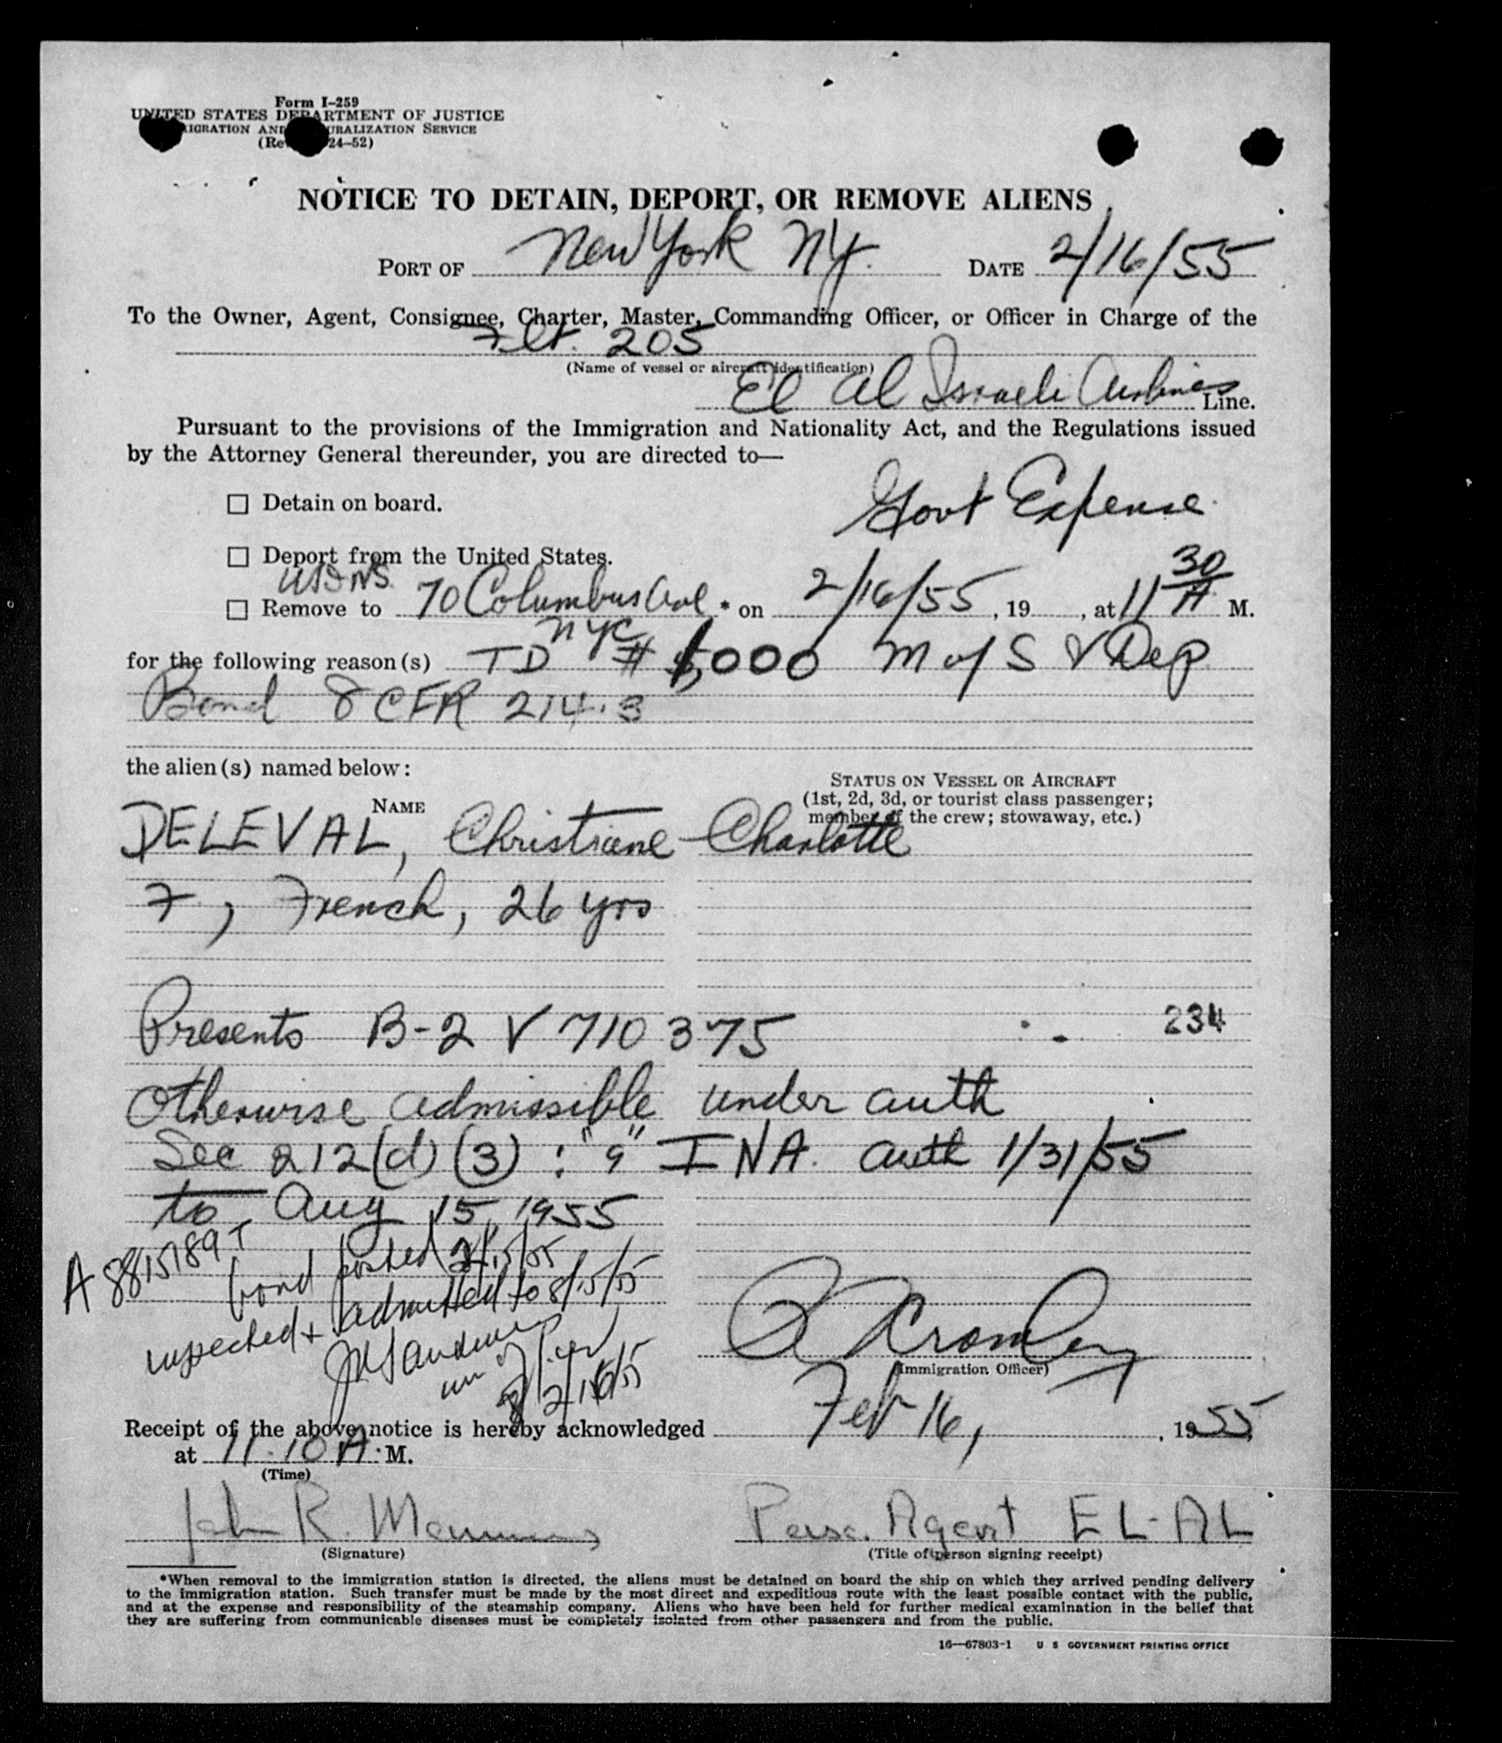 Form I-259
UNITED STATES DEPARTMENT OF JUSTICE
IGRATION AND URALIZATION SERVICE
(Re 24-52)
NOTICE TO DETAIN, DEPORT, OR REMOVE ALIENS
PORT OF New York NY. DATE 2/16/55
To the Owner, Agent, Consignee, Charter, Master, Commanding Officer, or Officer in Charge of the
Flt. 205
(Name of vessel or aircraft identification)
El Al Israeli Airlines Line.
Pursuant to the provisions of the Immigration and Nationality Act, and the Regulations issued
by the Attorney General thereunder, you are directed to—
☐ Detain on board.
Govt Expense
☐ Deport from the United States.
USINS
☐ Remove to 70 Columbus Ave * on 2/16/55, 19 , at 11 30/A M.
NYC
for the following reason(s) TD # 1,000 M of S & Dep
Bond 8 CFR 214.3
the alien(s) named below:
NAME
STATUS ON VESSEL OR AIRCRAFT
(1st, 2d, 3d, or tourist class passenger;
member of the crew; stowaway, etc.)
DELEVAL, Christiane Charlotte
F, French, 26 yrs
Presents B-2 V 710375
234
otherwise admissible under auth
Sec 212(d)(3) : "9" INA. auth 1/31/55
to Aug 15, 1955
A8815789T
bond posted 2/15/55
inspected + admitted to 8/15/55
2/16/55
R Cromley
(Immigration Officer)
Receipt of the above notice is hereby acknowledged Feb 16, , 1955
at 11.10 A. M.
(Time)
John R.
(Signature)
Agent EL-AL
(Title of person signing receipt)
*When removal to the immigration station is directed, the aliens must be detained on board the ship on which they arrived pending delivery
to the immigration station. Such transfer must be made by the most direct and expeditious route with the least possible contact with the public,
and at the expense and responsibility of the steamship company. Aliens who have been held for further medical examination in the belief that
they are suffering from communicable diseases must be completely isolated from other passengers and from the public.
16—67803-1 U S GOVERNMENT PRINTING OFFICE